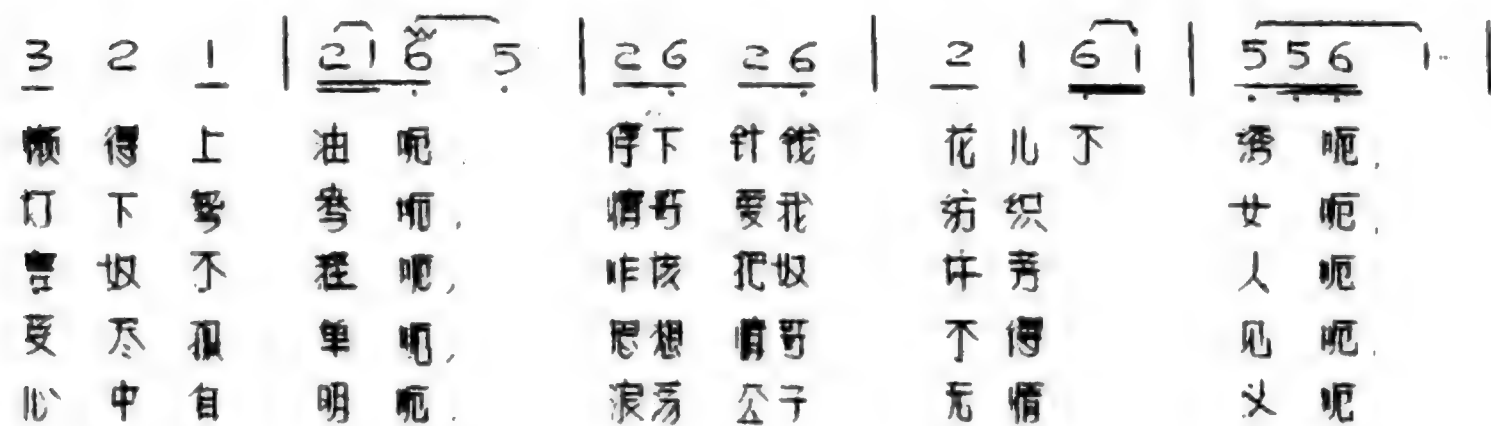 3 2 1 | 2 1 6 5 | 2 6 2 6 | 2 1 6 1 | 5 5 6 1 |
懒得上油呃 停下针线花儿不绣呃,
灯下鸳鸯呃, 情哥爱我纺织女呃,
奴不理呃, 咋该把奴许旁人呃
受尽孤单呃, 思想情哥不得见呃.
心中自明呃. 浪荡公子无情义呃